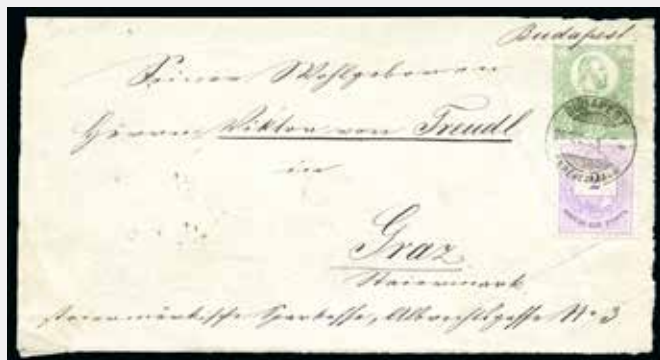 Budapest.
Seiner Wohlgeboren
Herrn Viktor von Treudl
in
BUDAPEST
2
Graz
Steiermark
steiermärkische Sparkasse, Albrechtgasse No 3